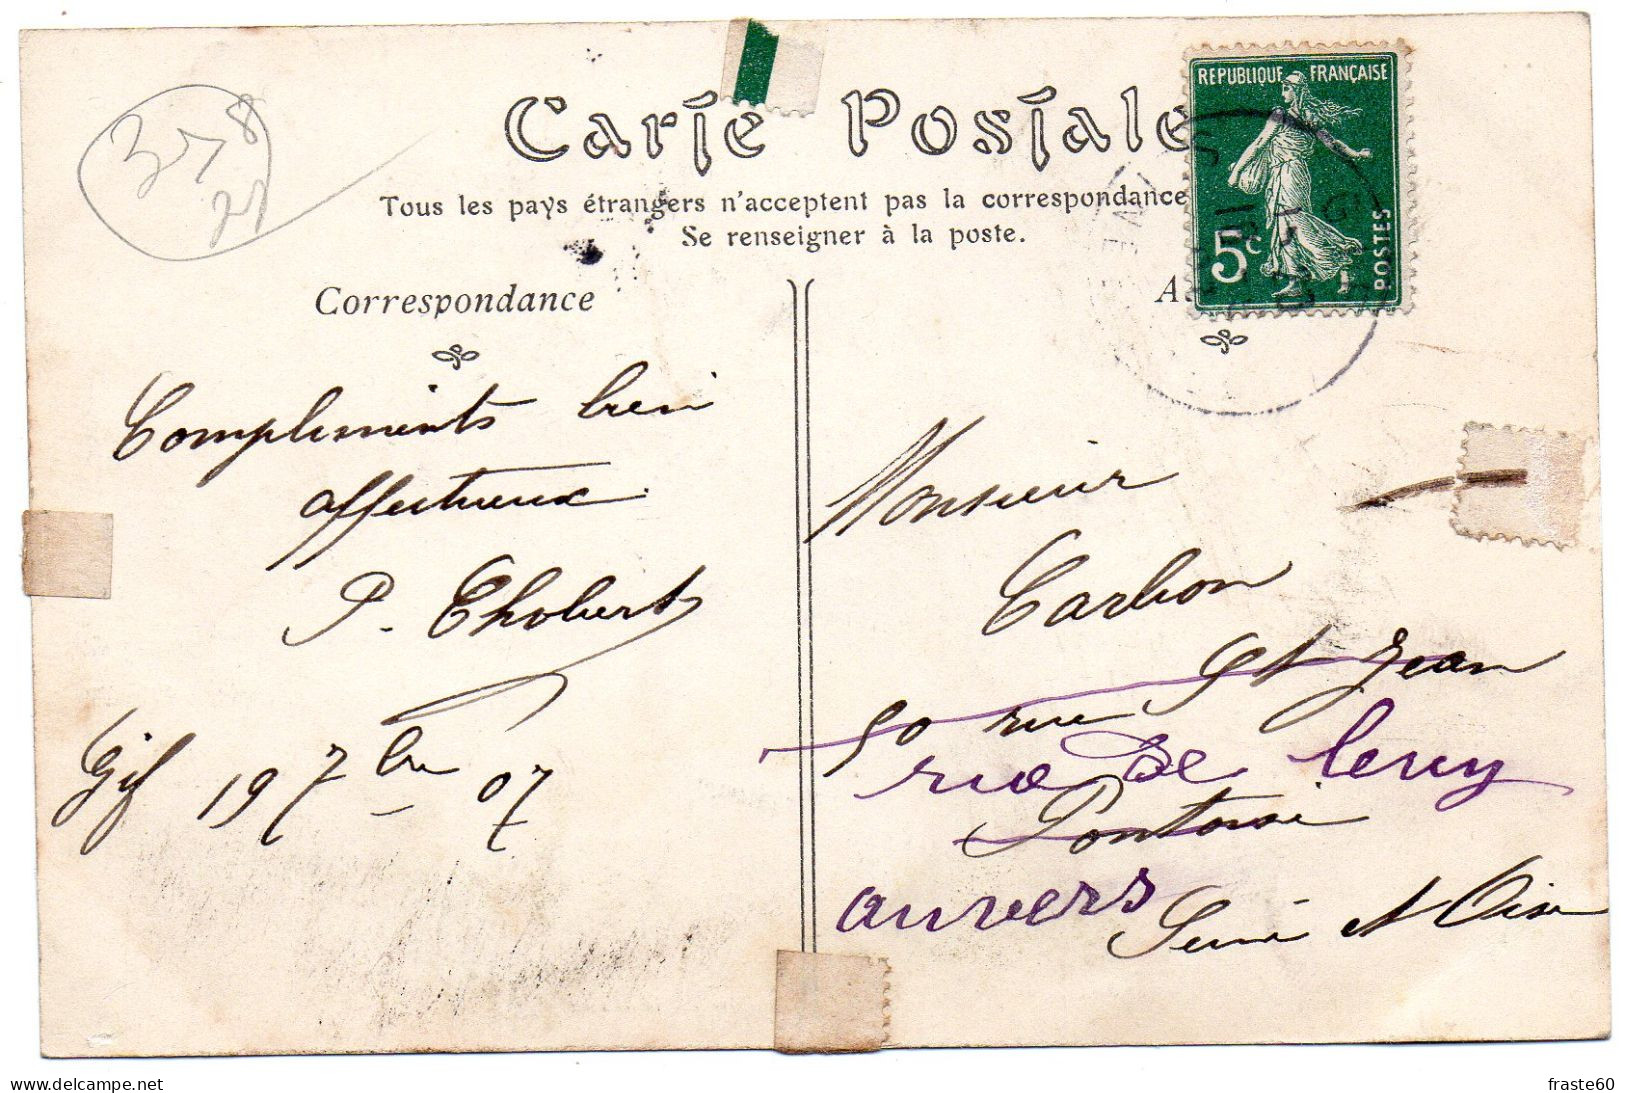 Carte Postale
REPUBLIQUE FRANÇAISE
5c
POSTES
Tous les pays étrangers n'acceptent pas la correspondance
Se renseigner à la poste.
Correspondance
A
Compliments bien
affectueux
P. Thobert
Gif 19 7bre 07
Monsieur
Carbon
50 rue St Jean
rue de lery
Pontoise
anvers
Seine et Oise
www.delcampe.net
fraste60